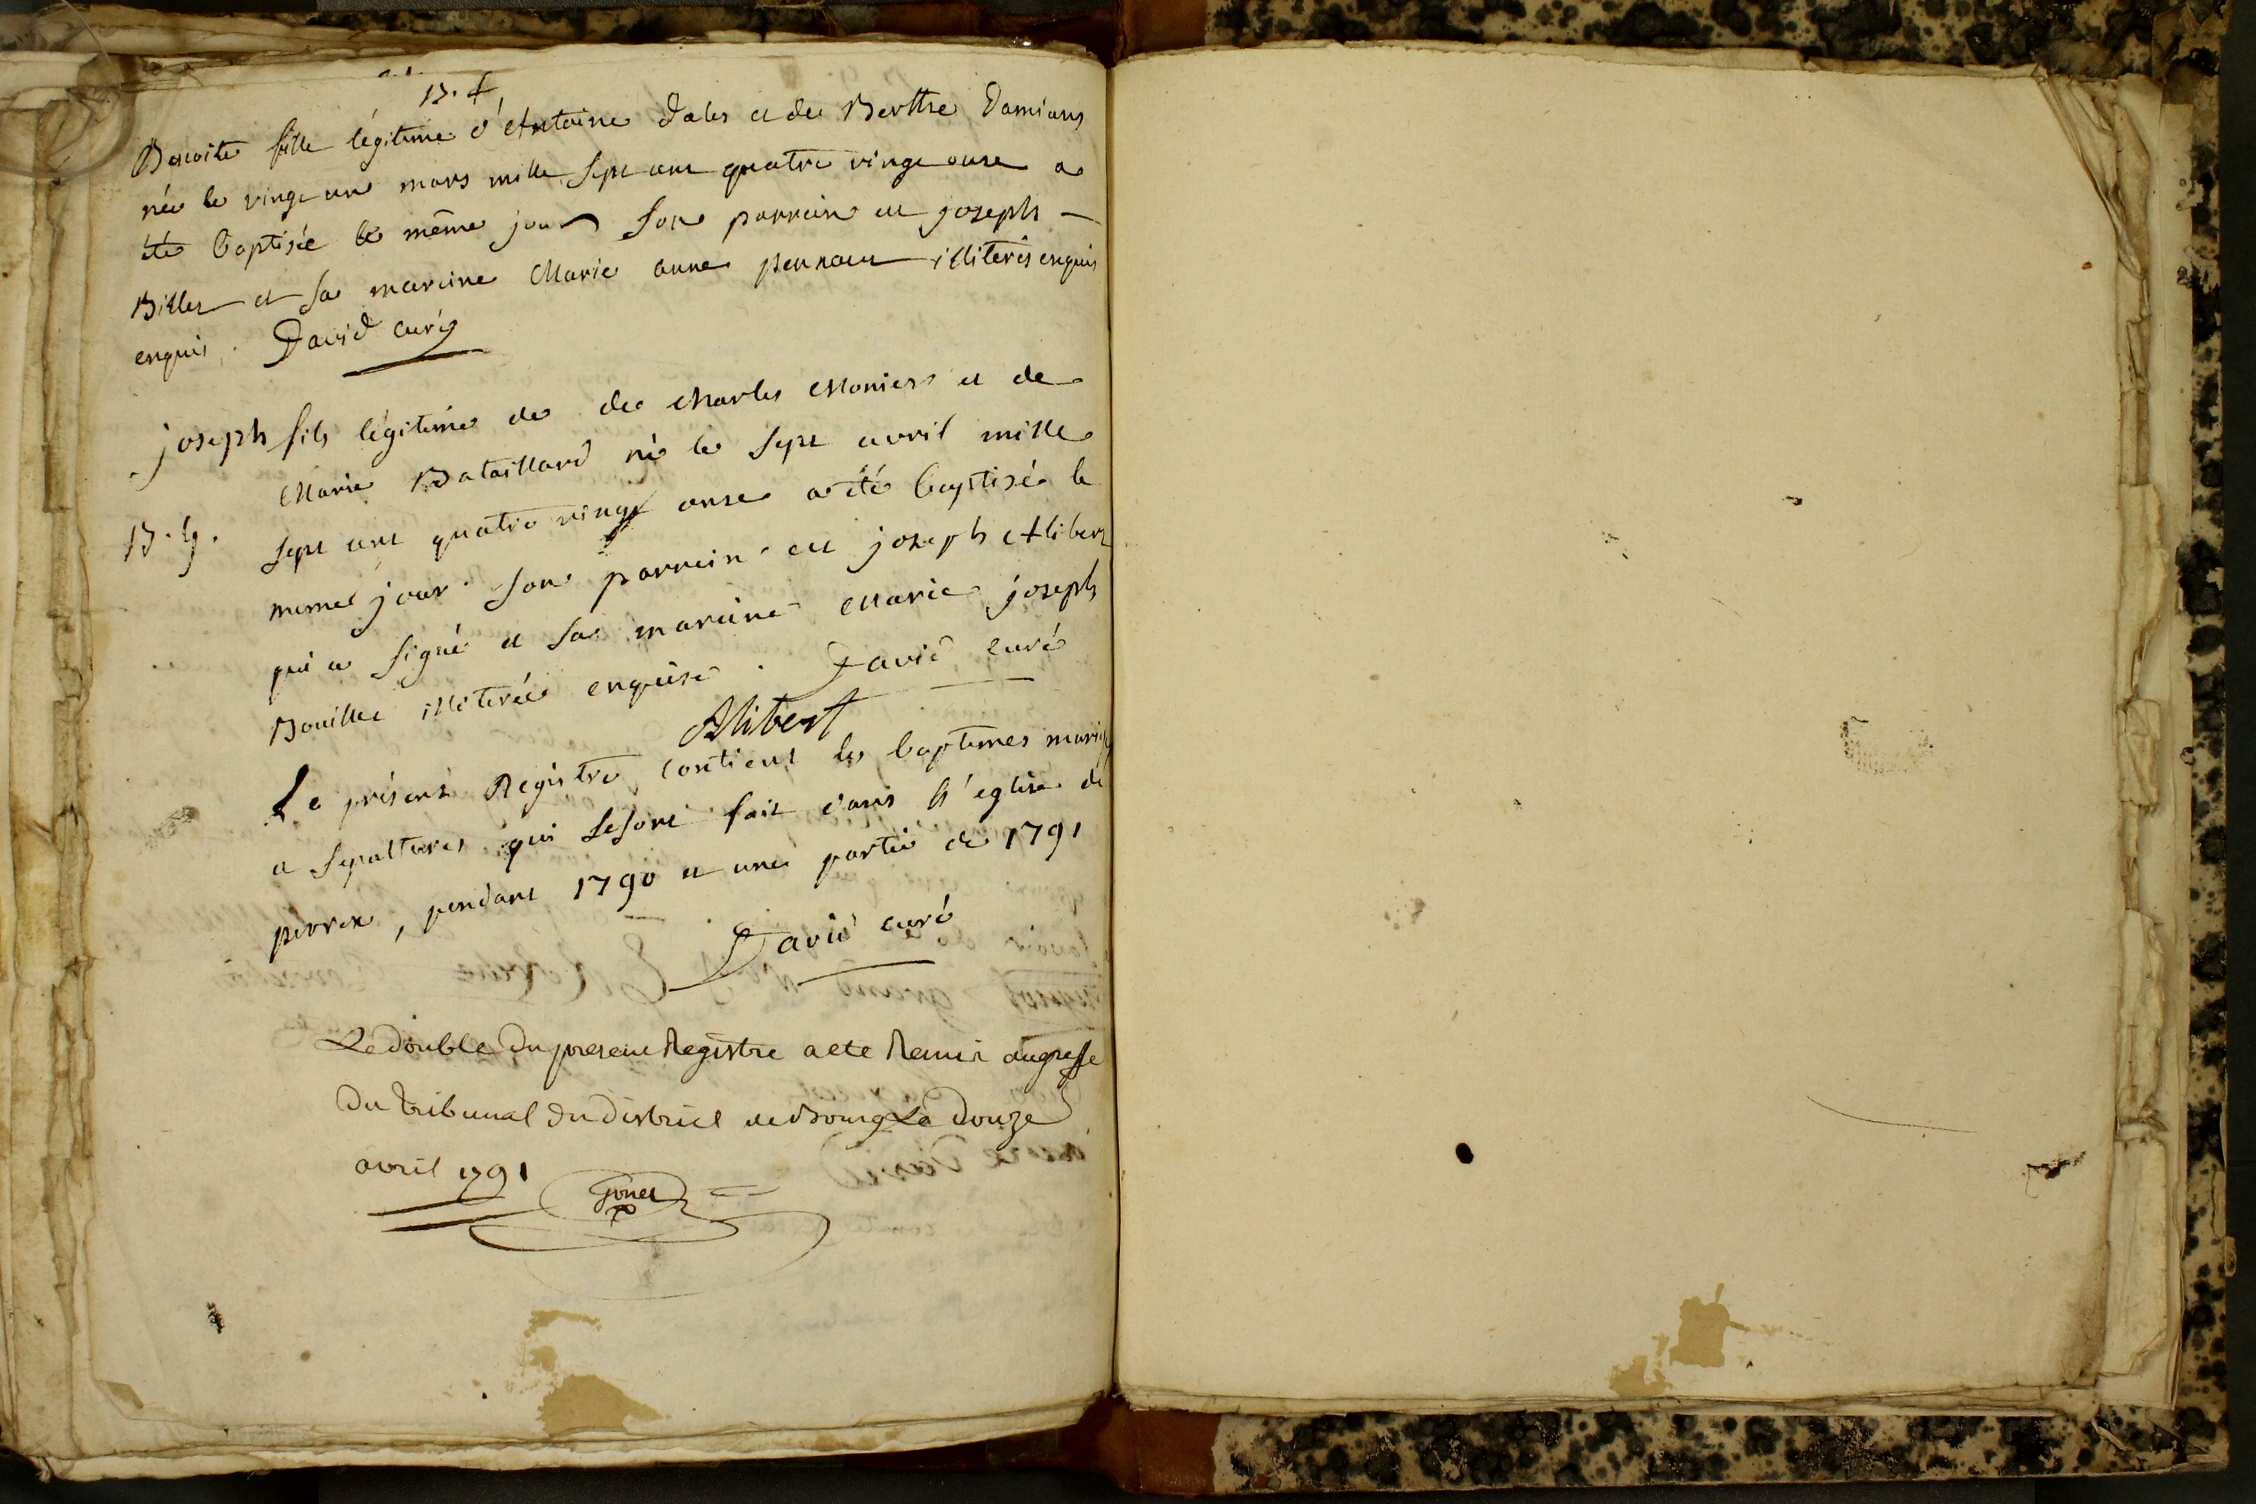 B. f.
Benoite fille légitime d'Antoine Dales et de Berthe Damians
née le vingt un mars mille sept cent quatre vingt onse a
été baptisée le même jour son parrain est joseph
Billet et sa maraine Marie anne illiterés enquis
enquis. David curé
joseph fils légitime de de charles Monier et de
Marie Bataillard né le sept avril mille
B. g. sept cent quatre vingt onse a été baptisé le
meme jour. son parrain est joseph Alibert
qui a signé et sa maraine Marie joseph
Bouillee illiterée enquise. David curé
Alibert
Le présent Registre contient les baptemes mariages
et sepultures qui se sont fait dans l'eglise de
perrex, pendant 1790 et une partie de 1791
David curé
Le double du present Registre a eté Remis au greffe
du tribunal du district de Bourg Le douze
avril 1791